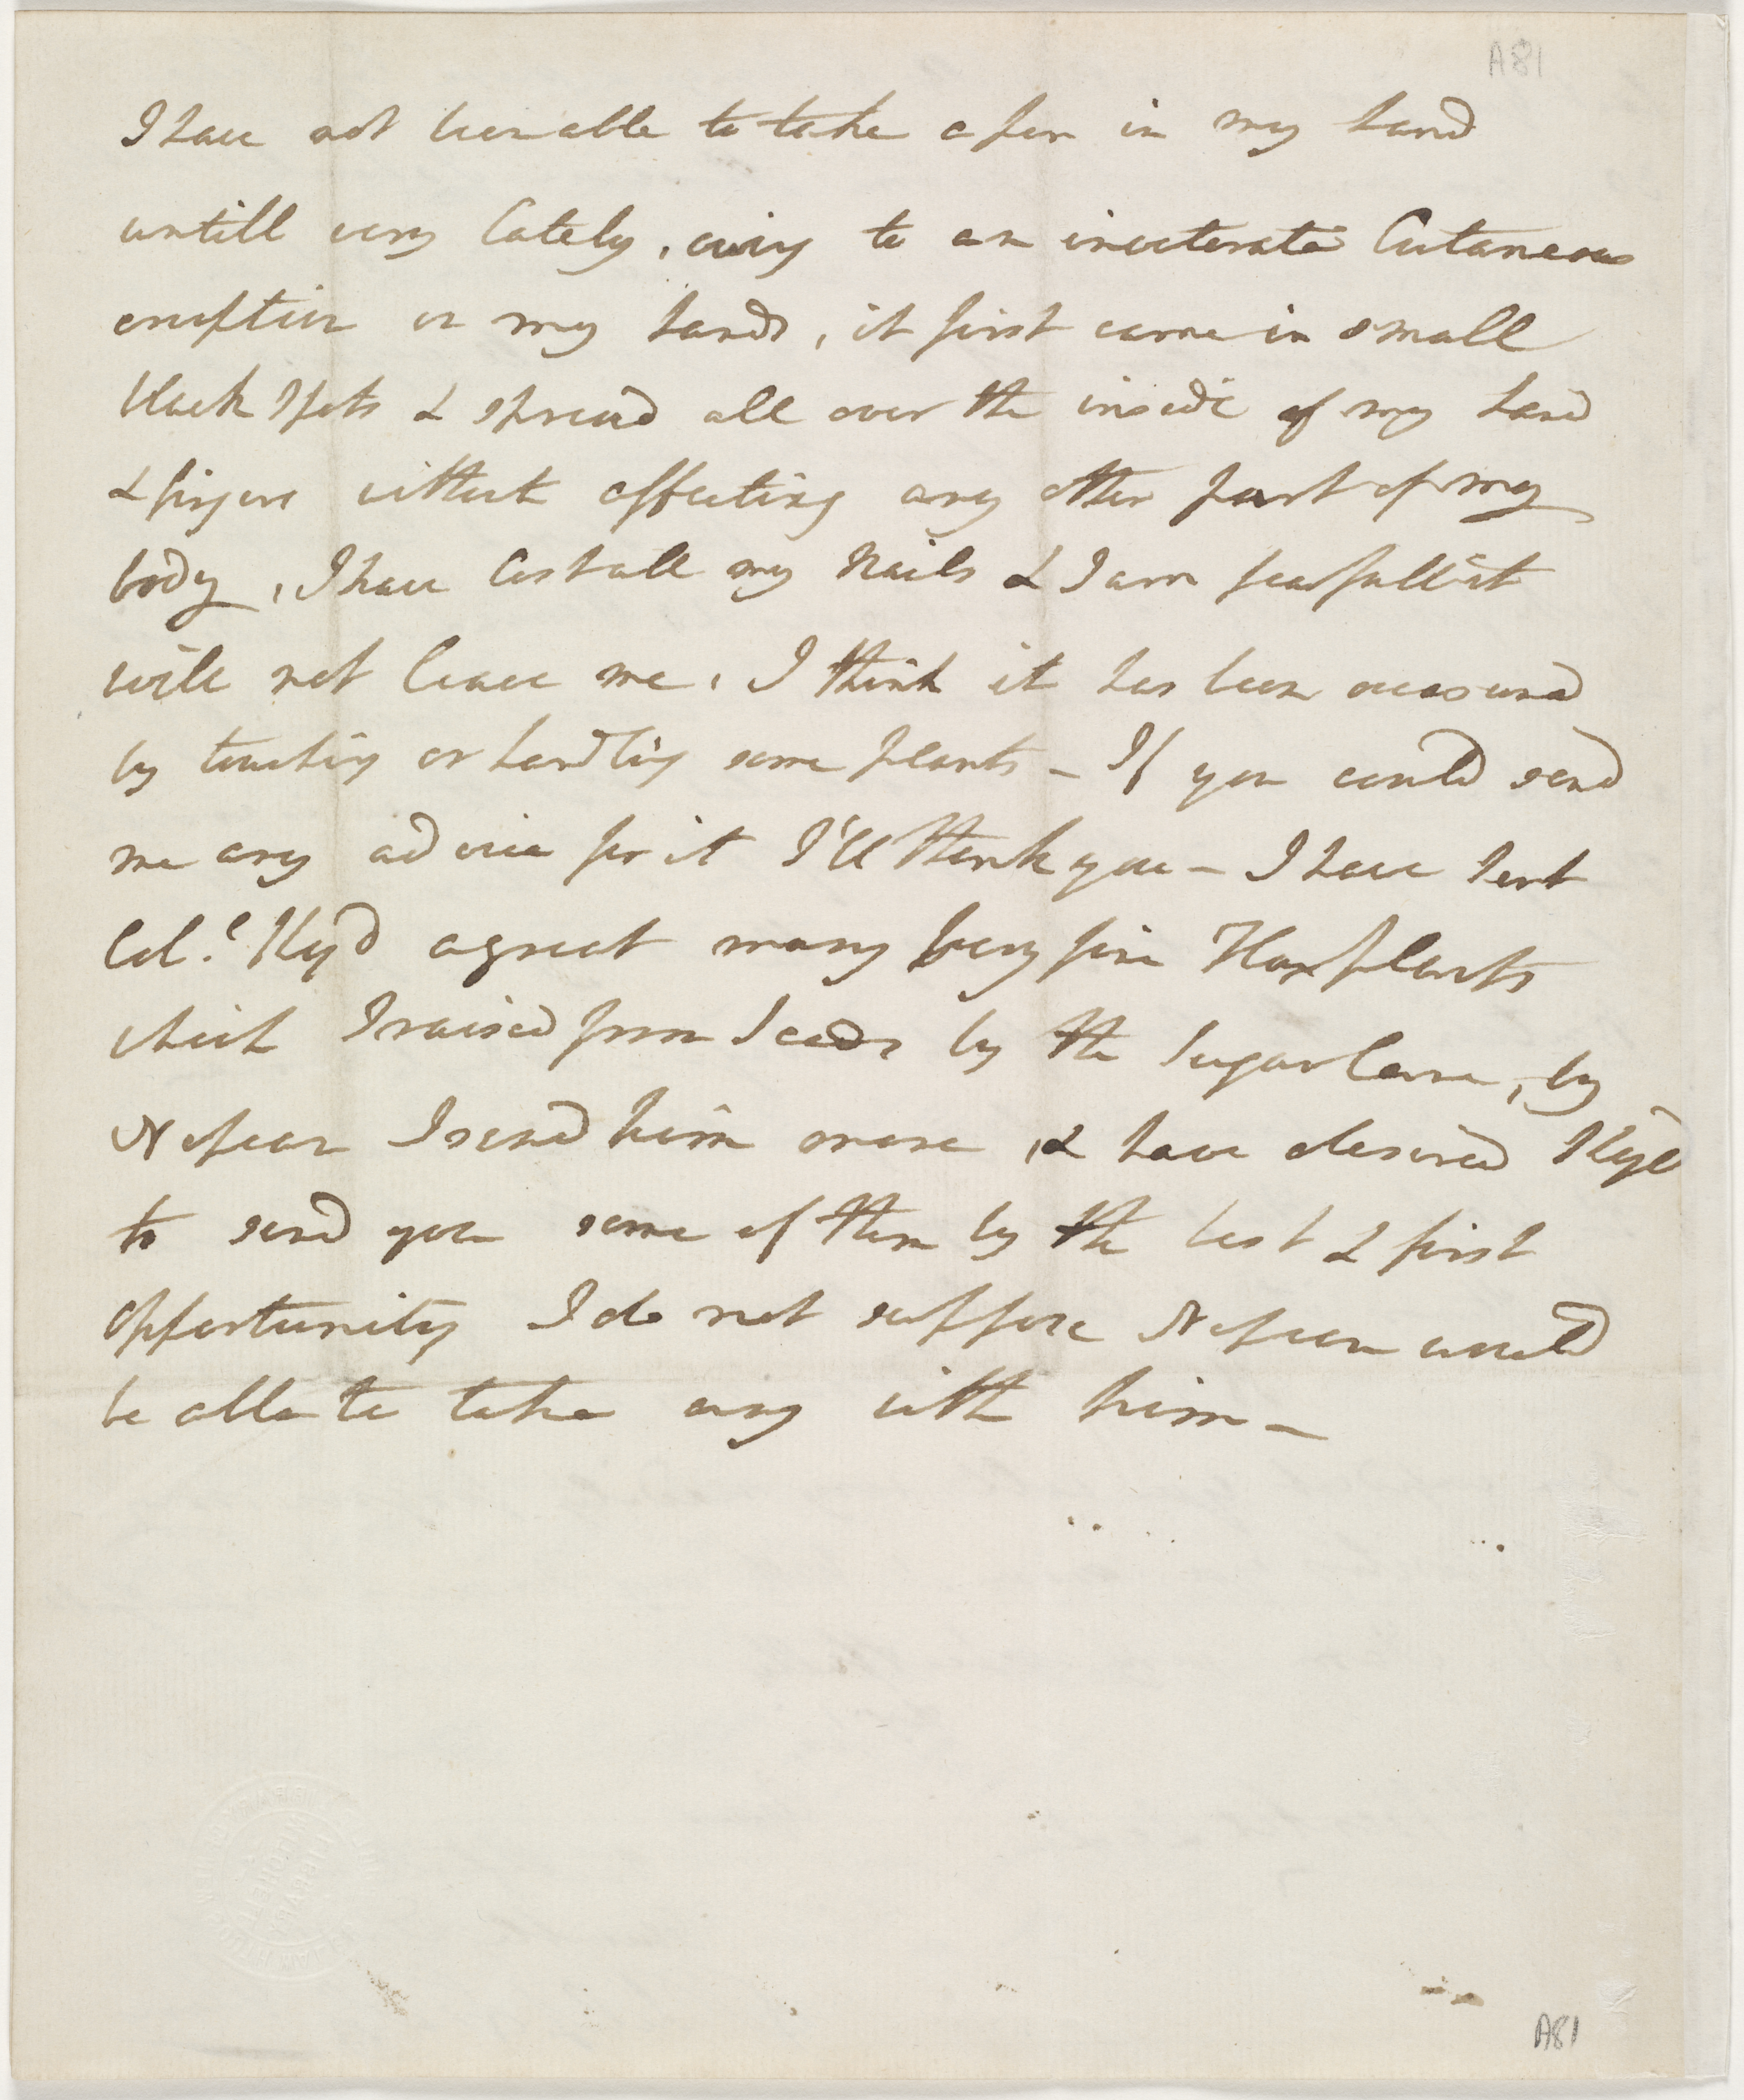 A81
I have not been able to take a pen in my hand
untill very lately, owing to an inveterate Cutaneous
eruption on my hands, it first came in small
black spots & spread all over the inside of my hand
& fingers without affecting any other part of my
body, I have lost all my Nails & I am fearfull it
will not leave me, I think it has been occasiond
by touching or handling some plants - If you could send
me any advice for it I'll thank you - I have sent
Col.l Kyd a great many very fine Flax plants
which I raised from seeds by the Sugar Cane, by
Nepean I send him more, & have desired Kyd
to send you some of them by the best & first
opportunity I do not suppose Nepean would
be able to take any with him -
A81